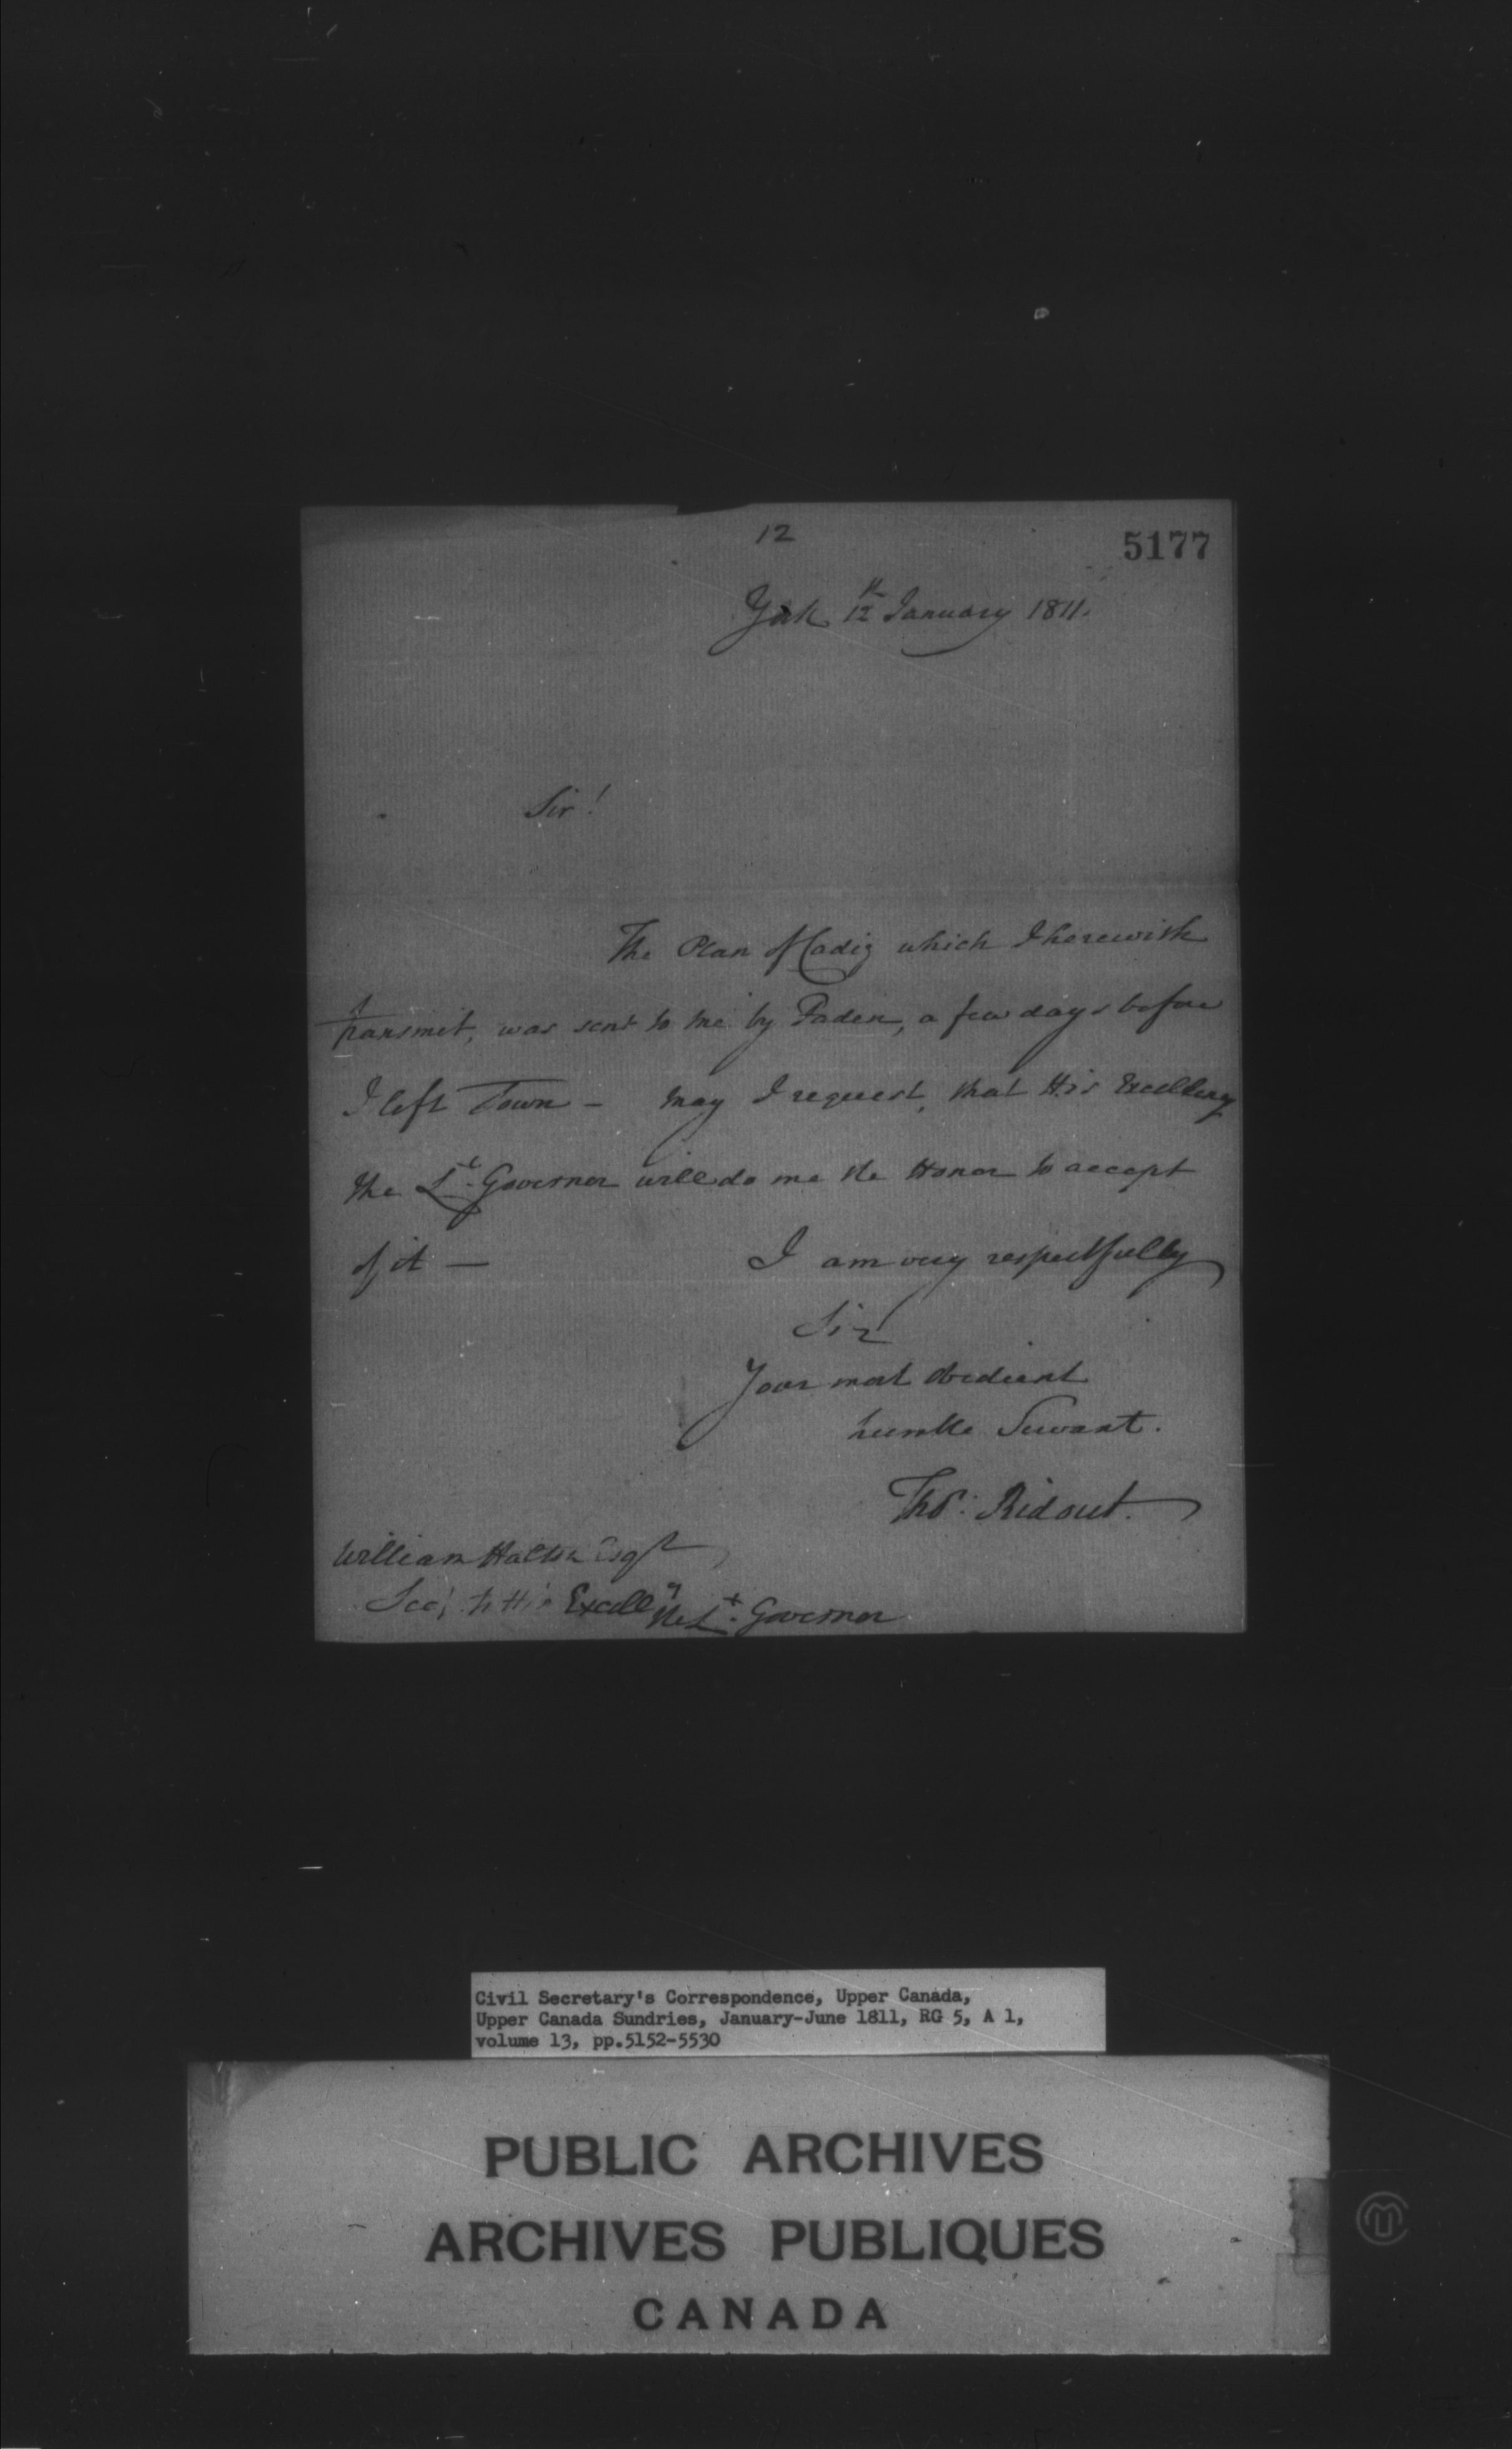 12
5177
York 12th January 1811.
Sir!
The Plan of Cadiz which I herewith
transmit, was sent to me by Faden, a few days before
I left Town – May I request, that His Excellency
the Lt. Governor will do me the Honor to accept
of it —
I am very respectfully
Sir
Your most obedient
humble Servant.
Thos: Ridout.
William Halton Esqr
Secy to His Excelly the Lt. Governor
Civil Secretary's Correspondence, Upper Canada,
Upper Canada Sundries, January-June 1811, RG 5, A 1,
volume 13, pp.5152-5530
PUBLIC ARCHIVES
ARCHIVES PUBLIQUES
CANADA